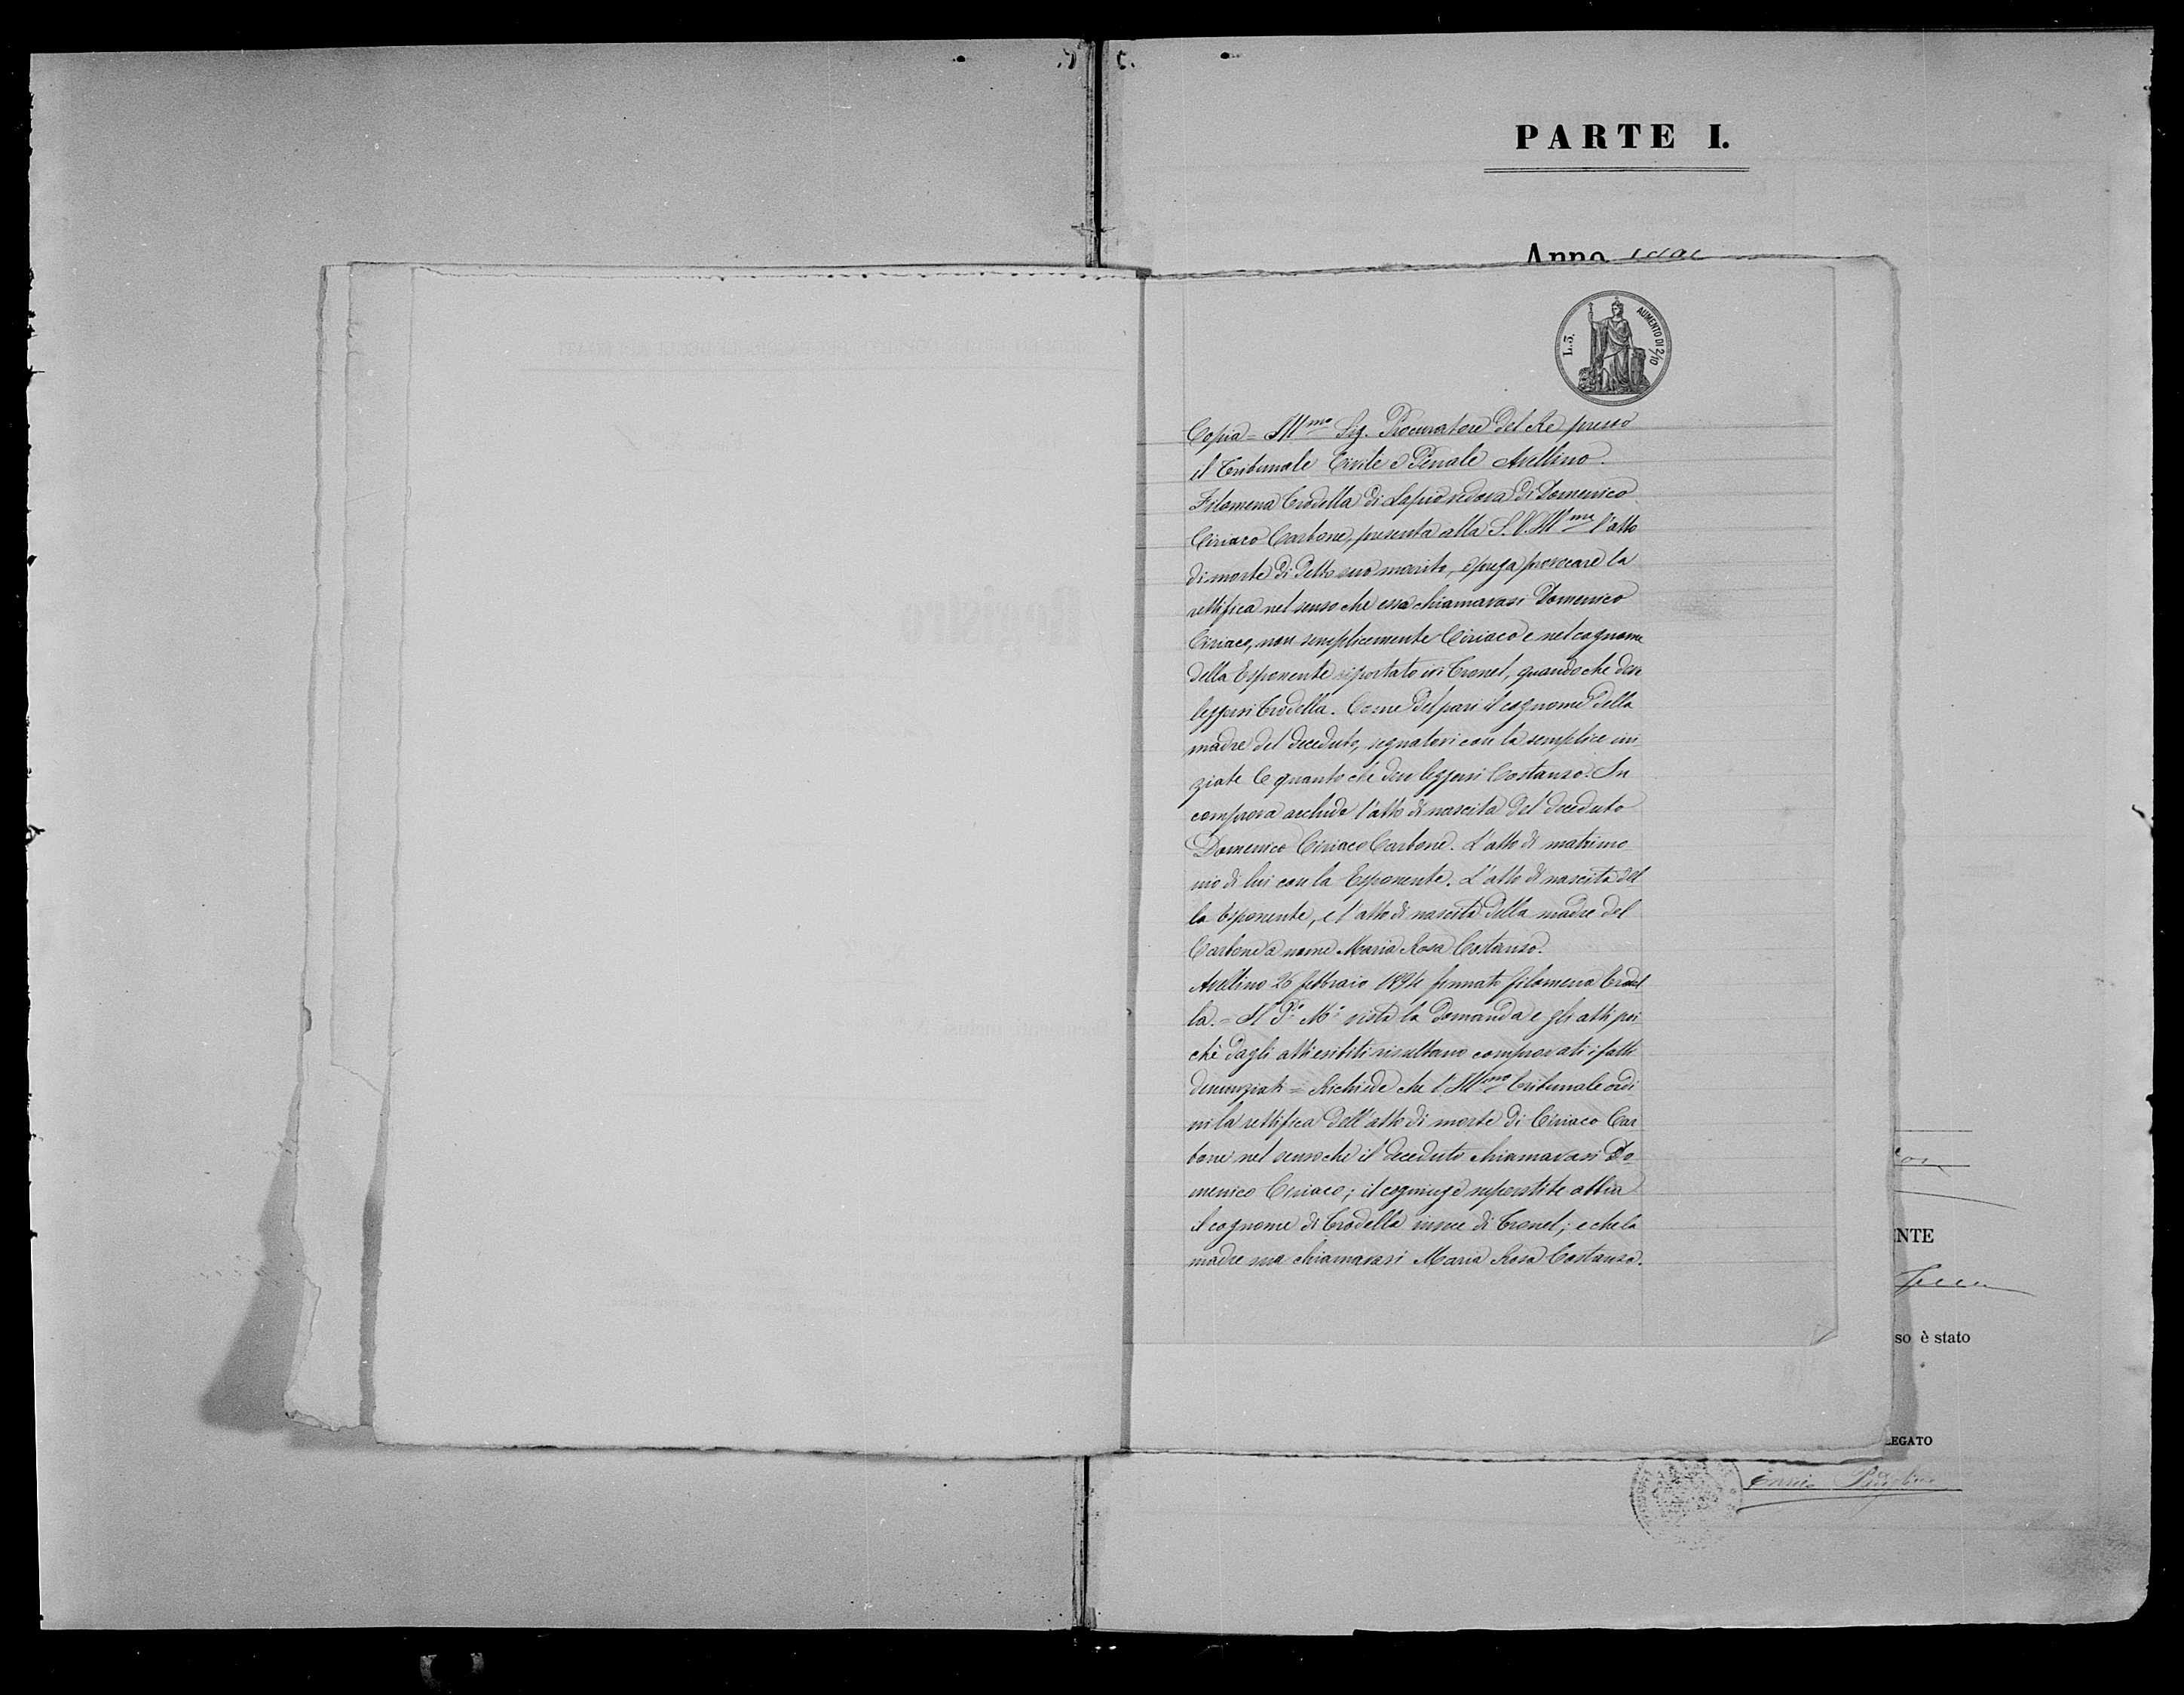 PARTE I.
Anno
L.3. AUMENTO DI 2/10
Copia = Ill.mo Sig. Procuratore del Re presso
il Tribunale Civile e Penale Avellino.
Filomena Trodella di Lapio vedova di Domenico
Ciriaco Carbone, presenta alla S. V. Ill.ma l'atto
di morte di detto suo marito, e prega provocare la
rettifica nel senso che esso chiamavasi Domenico
Ciriaco, non semplicemente Ciriaco e nel cognome
della Esponente riportato in Tronel, quando che deve
leggersi Trodella. Come del pari il cognome della
madre del deceduto, segnatovi con la semplice ini
ziale C quanto che deve leggersi Costanzo. In
comprova acclude l'atto di nascita del deceduto
Domenico Ciriaco Carbone. L'atto di matrimo
nio di lui con la Esponente. L'atto di nascita del
la Esponente, e l'atto di nascita della madre del
Carbone a nome Maria Rosa Costanzo.
Avellino 26 febbraio 1894 firmato filomena Trodel
la. = Il P. M. vista la domanda e gli atti poi
chè dagli atti esibiti risultano comprovati i fatti
denunziati = Richiede che l'Ill.mo Tribunale ordi
ni la rettifica dell'atto di morte di Ciriaco Car
bone nel senso che il deceduto chiamavasi Do
menico Ciriaco; il coniuge superstite abbia
il cognome di Trodella invece di Tronel; e che la
madre sua chiamavasi Maria Rosa Costanzo.
NTE
so è stato
LEGATO